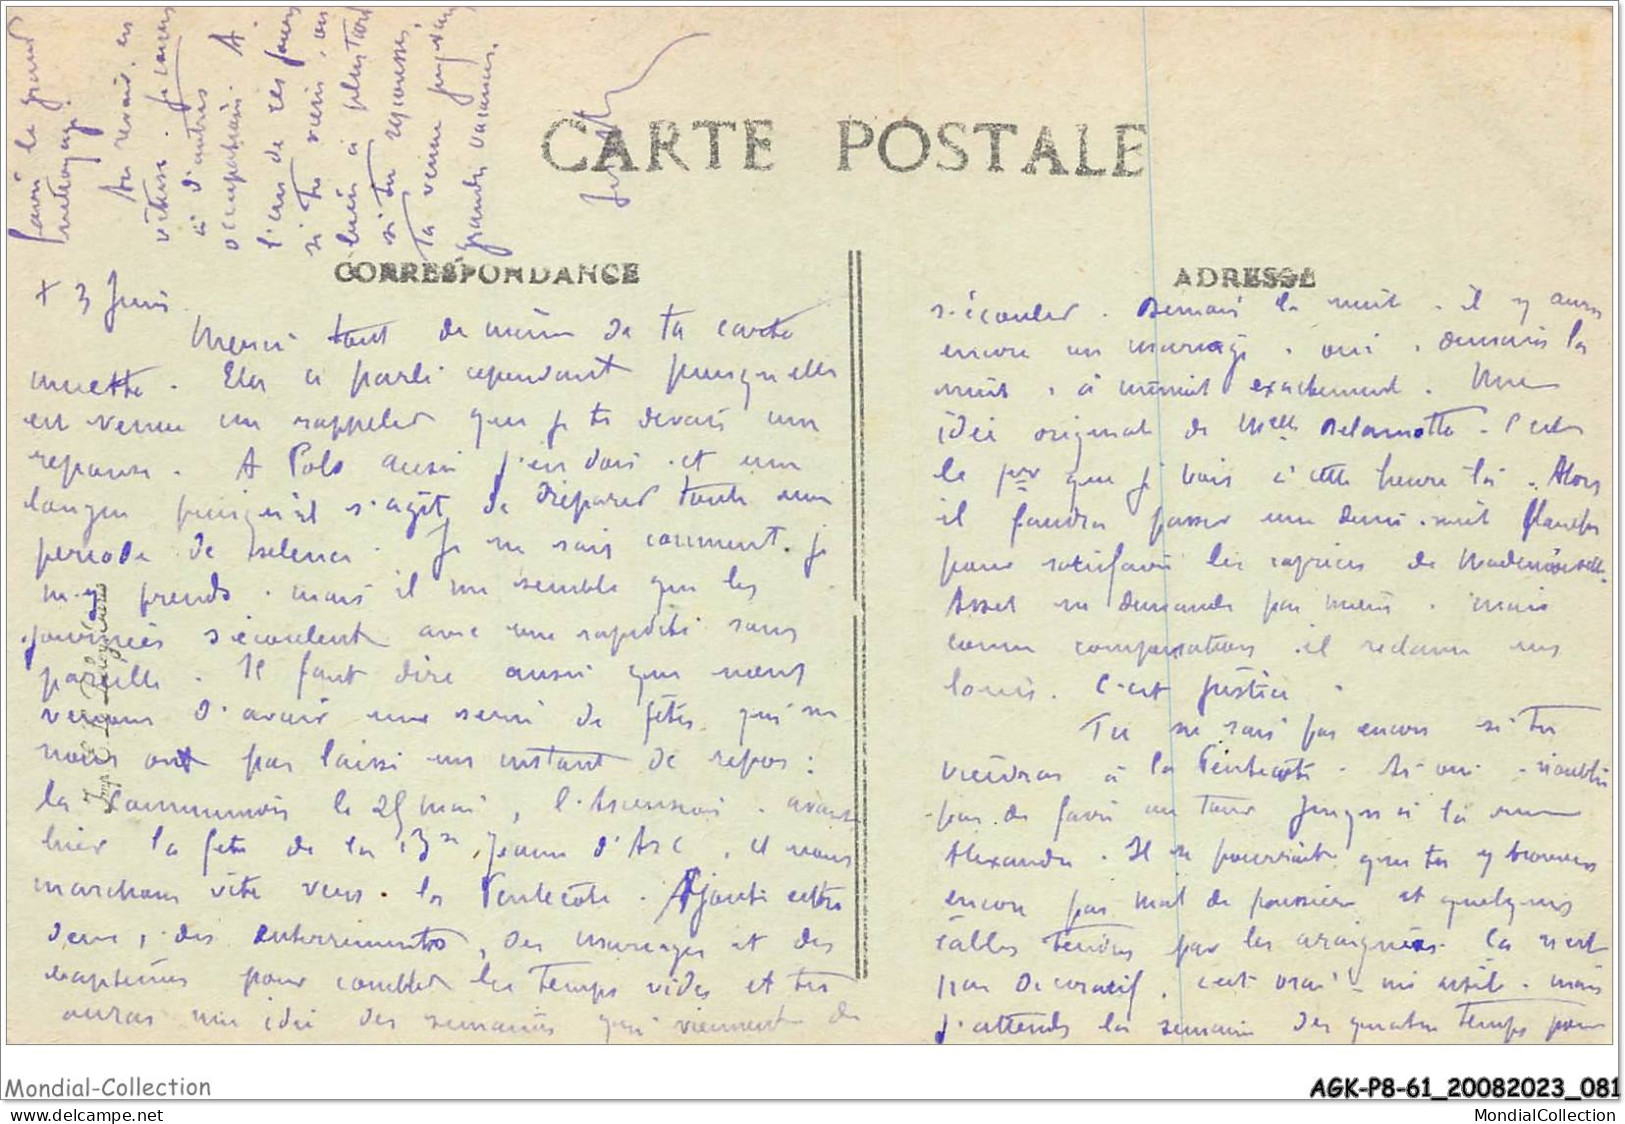 CARTE POSTALE
CORRESPONDANCE
ADRESSE
+ 3 Juin
Merci tout de même de ta carte
muette. Elle a parlé cependant puisqu'elle
est venue me rappeler que je te devais une
réponse. A Polo aussi j'en dois et une
longue puisqu'il s'agit de réparer toute une
période de silence. Je ne sais comment je
m'y prends, mais il me semble que les
journées s'écoulent avec une rapidité sans
pareille. Il faut dire aussi que nous
venons d'avoir une série de fêtes qui ne
nous ont pas laissé un instant de repos :
la Communion le 25 mai, l'Ascension, avant
hier la fête de la Jeanne d'Arc, et nous
marchons vite vers la Pentecôte. Ajoute entre
deux, des enterrements, des mariages et des
baptêmes pour combler les temps vides et tu
auras une idée des semaines qui viennent de
s'écouler. Demain la nuit, il y aura
encore un mariage, oui, demain la
nuit, à minuit exactement. Une
idée originale de Melle Delamotte. C'est
la que je vois à cette heure là. Alors
il faudra passer une demi-nuit blanche
pour satisfaire les caprices de Mademoiselle.
ne demande pas mieux, mais
comme compensation, il réclame un
louis. C'est justice.
Tu ne sais pas encore si tu
viendras à la Pentecôte. Si oui, n'oublie
pas de faire un tour jusqu'à la rue
Alexandre. Il se pourrait que tu y trouves
encore pas mal de poussière et quelques
câbles tendus par les araignées. Ca n'est
pas décoratif, c'est vrai, ni utile, mais
j'attends la semaine des quatre temps pour
faire le grand
nettoyage.
Au revoir, en
vitesse, je cours
à d'autres
occupations. A
l'un de ces jours
si tu viens, ou
bien à plus tard
si tu repousses
ta venue jusqu'aux
grandes vacances.
Imp.
Mondial-Collection
AGK-P8-61_20082023_081
www.delcampe.net
MondialCollection